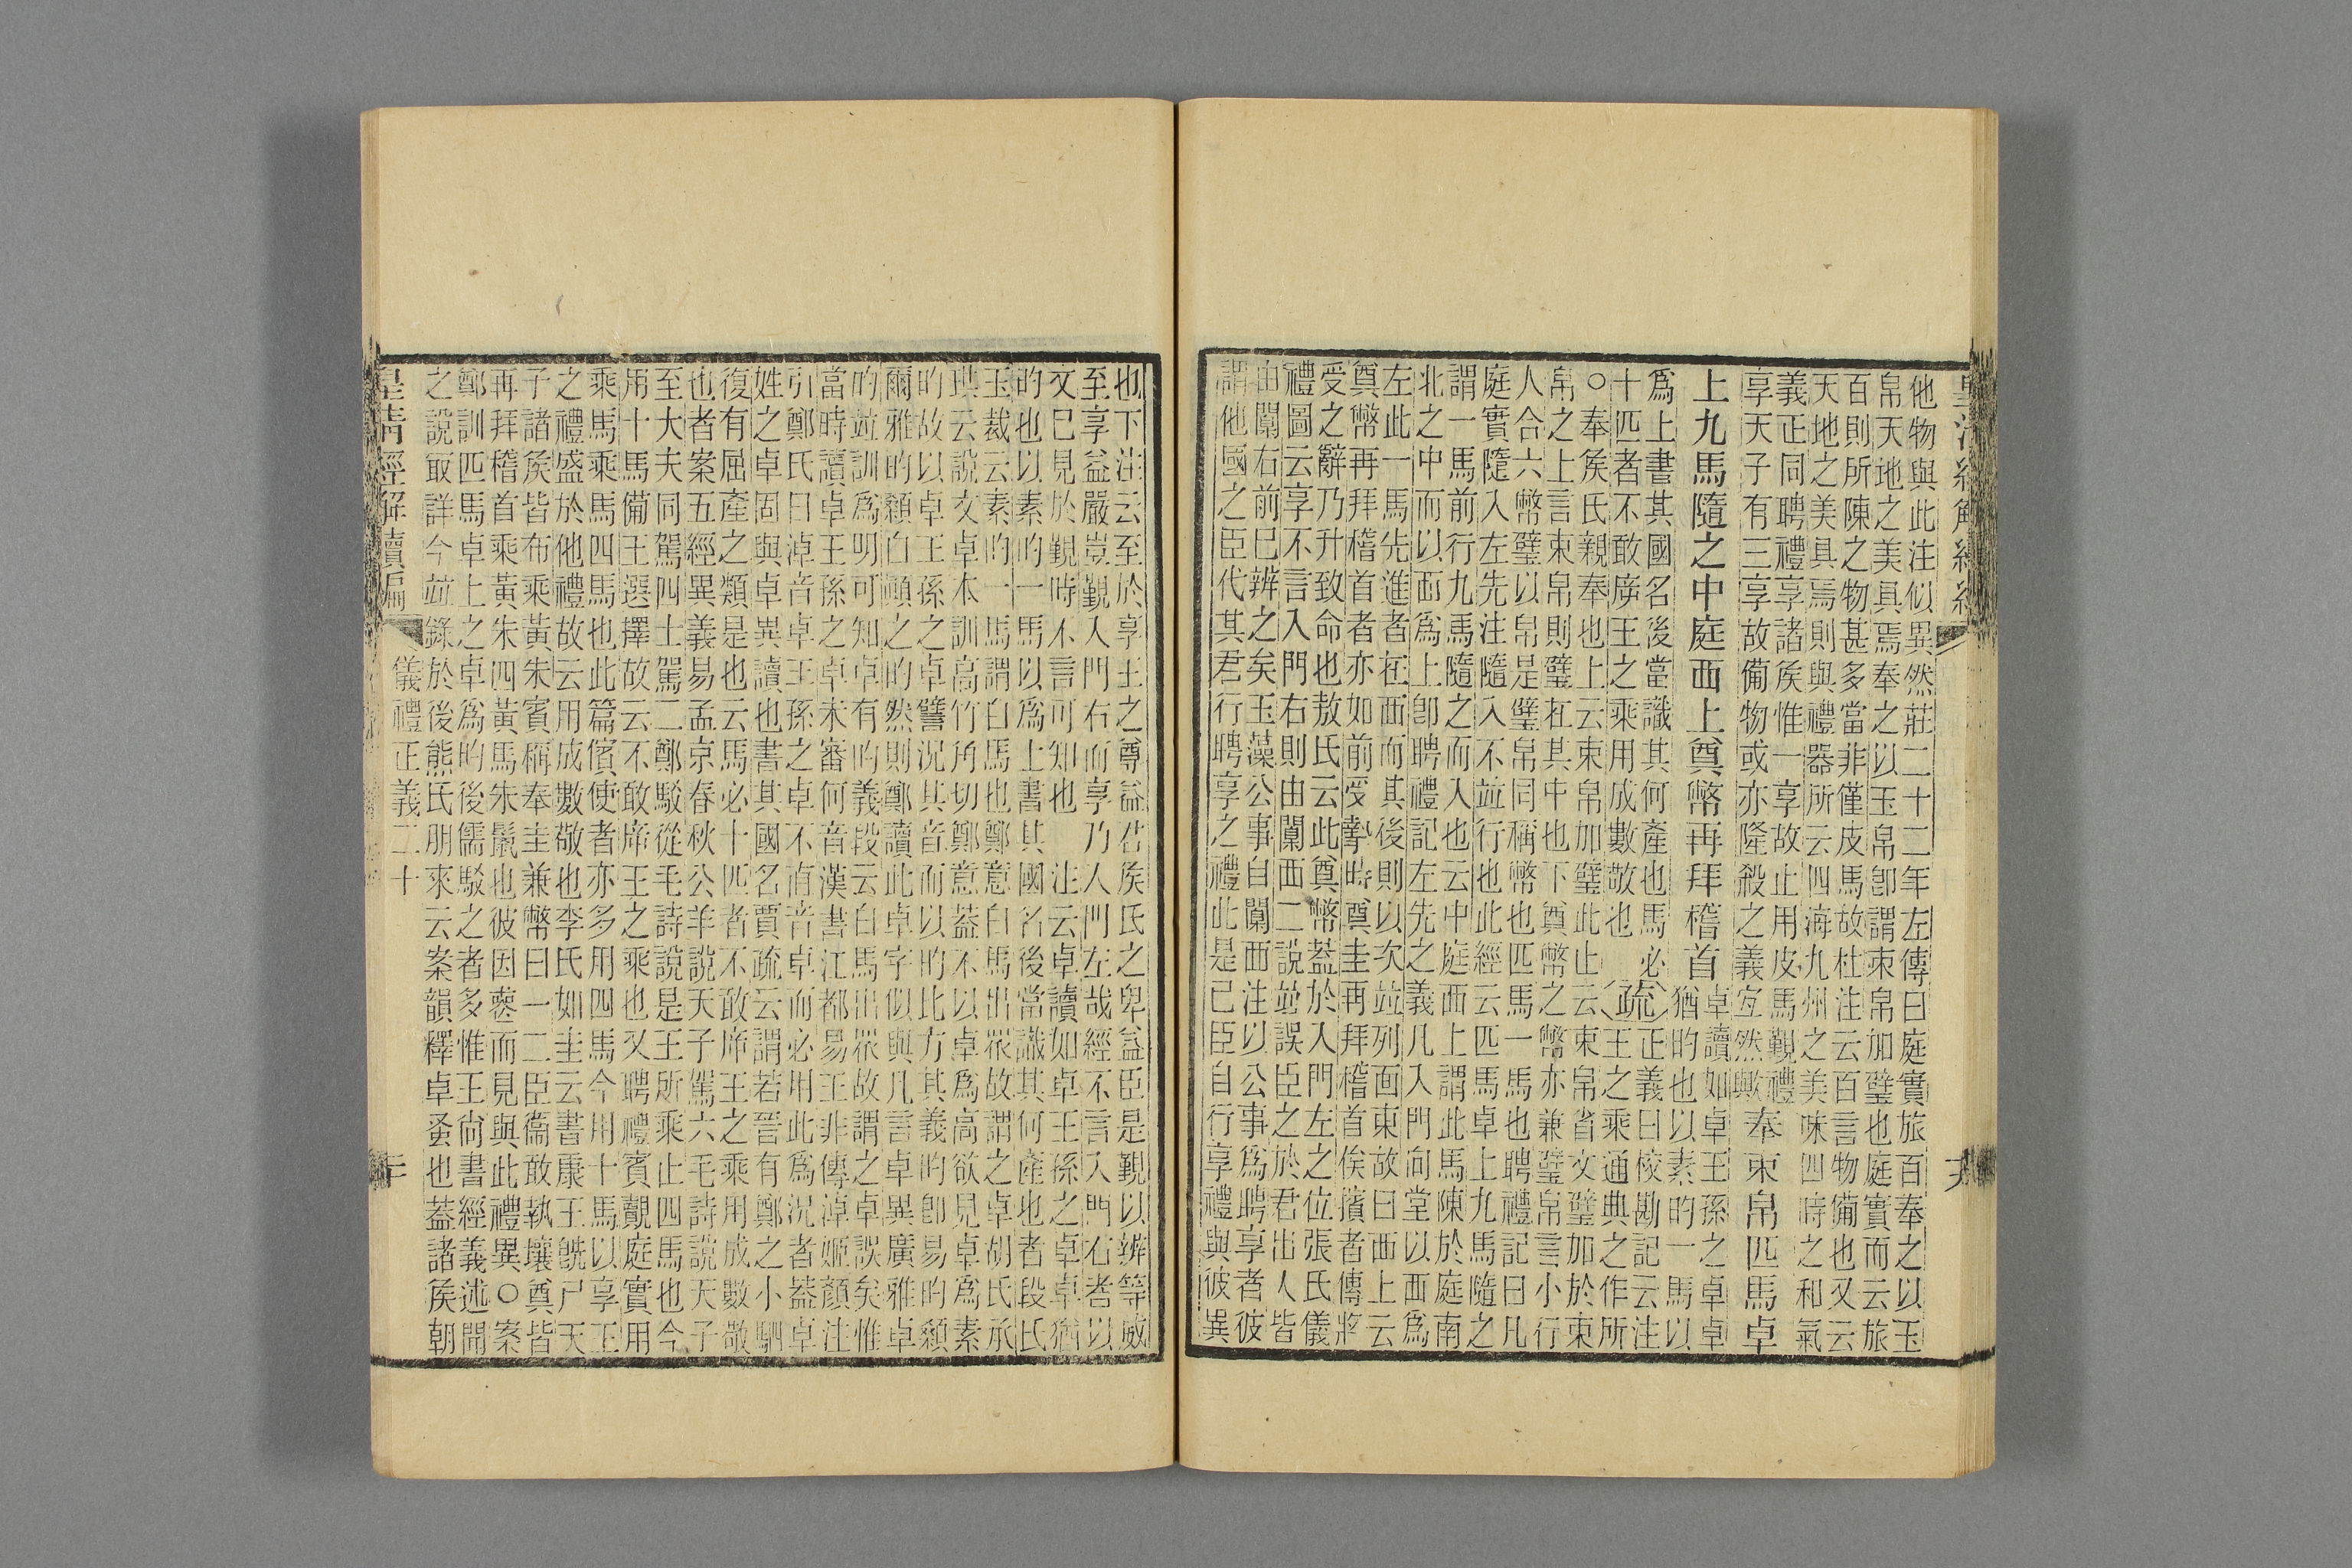 他物與此注似異然莊二十二年左傳曰庭實旅百奉之以玉
帛天地之美具焉奉之以玉帛卽謂束帛加璧也庭實而云旅
百則所陳之物甚多當非僅皮馬故杜注云百言物備也又云
天地之美具焉則與禮器所云四海九州之美味四時之和氣
義正同聘禮享諸矦惟一享故止用皮馬覲禮
享天子有三享故備物或亦隆殺之義宐然歟
奉束帛匹馬卓
上九馬隨之中庭西上奠幣再拜稽首
卓讀如卓王孫之卓卓
猶旳也以素旳一馬以
爲上書其國名後當識其何產也馬必
十匹者不敢㡿王之乘用成數敬也
疏
正義曰校勘記云注
王之乘通典之作所
○奉矦氏親奉也上云束帛加璧此止云束帛省文璧加於束
帛之上言束帛則璧在其中也下奠幣之幣亦兼璧帛言小行
人合六幣璧以帛是璧帛同稱幣也匹馬一馬也聘禮記曰凡
庭實隨入左先注隨入不竝行也此經云匹馬卓上九馬隨之
謂一馬前行九馬隨之而入也云中庭西上謂此馬陳於庭南
北之中而以西爲上卽聘禮記左先之義凡入門向堂以西爲
左此一馬先進者在西而其後則以次竝列面東故曰西上云
奠幣再拜稽首者亦如前受摯時奠圭再拜稽首俟擯者傳將
受之辭乃升致命也敖氏云此奠幣蓋於入門左之位張氏儀
禮圖云享不言入門右則由闑西二說竝誤臣之於君出入皆
由闑右前已辨之矣玉藻公事自闑西注以公事爲聘享者彼
謂他國之臣代其君行聘享之禮此是已臣自行享禮與彼異
也下注云至於享王之尊益君矦氏之卑益臣是覲以辨等威
至享益嚴豈覲入門右而享乃入門左哉經不言入門右者以
文已見於覲時不言可知也　注云卓讀如卓王孫之卓卓猶
旳也以素旳一馬以爲上書其國名後當識其何產地者段氏
玉裁云素旳一馬謂白馬也鄭意白馬出衆故謂之卓胡氏承
珙云說文卓本訓高竹角切鄭意蓋不以卓爲高欲見卓爲素
旳故以卓王孫之卓譬況其音而以旳比方其義旳卽易旳顙
爾雅旳顙白顚之旳然則鄭讀此卓字似與凡言卓異廣雅卓
旳竝訓爲明可知卓有旳義段云白馬出衆故謂之卓誤矣惟
當時讀卓王孫之卓未審何音漢書江都易王非傳淖姬顏注
引鄭氏曰淖音卓王孫之卓不直音卓而必用此爲況者蓋卓
姓之卓固與卓異讀也書其國名賈疏云謂若晉有鄭之小駟
復有屈產之類是也云馬必十匹者不敢㡿王之乘用成數敬
也者案五經異義易孟京春秋公羊說天子駕六毛詩說天子
至大夫同駕四士駕二鄭駁從毛詩說是王所乘止四馬也今
用十馬備王選擇故云不敢㡿王之乘也又聘禮賓覿庭實用
乘馬乘馬四馬也此篇儐使者亦多用四馬今用十馬以享王
之禮盛於他禮故云用成數敬也李氏如圭云書康王旣尸天
子諸矦皆布乘黃朱賓稱奉圭兼幣曰一二臣衞敢執壤奠皆
再拜稽首乘黃朱四黃馬朱鬣也彼因喪而見與此禮異○案
鄭訓匹馬卓上之卓爲旳後儒駁之者多惟王尙書經義述聞
之說取詳今竝錄於後熊氏朋來云案韻釋卓蚤也蓋諸矦朝
皇淸經解續編
儀禮正義二十